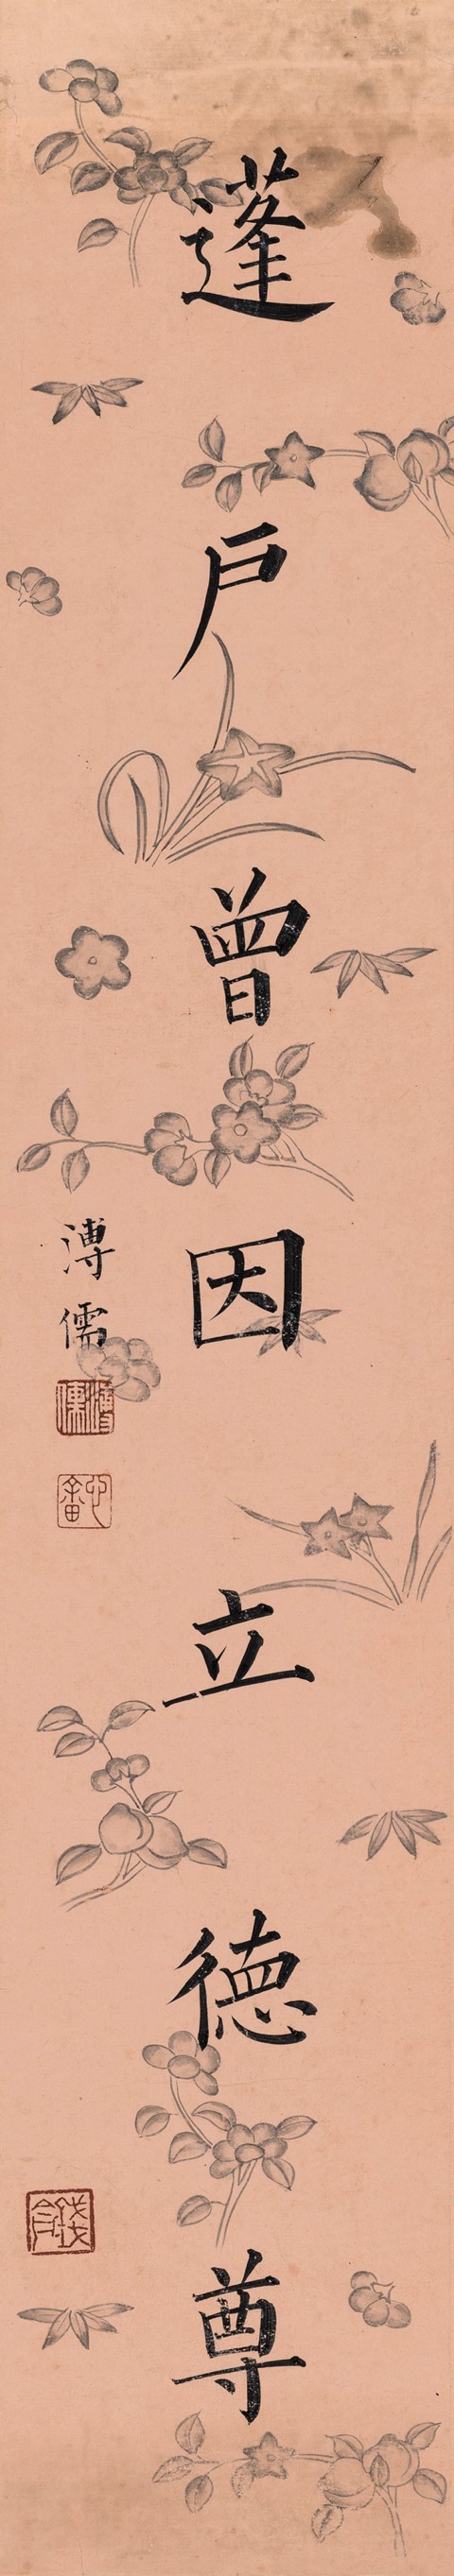 蓬戶曾因立德尊
溥儒
溥儒
心畬